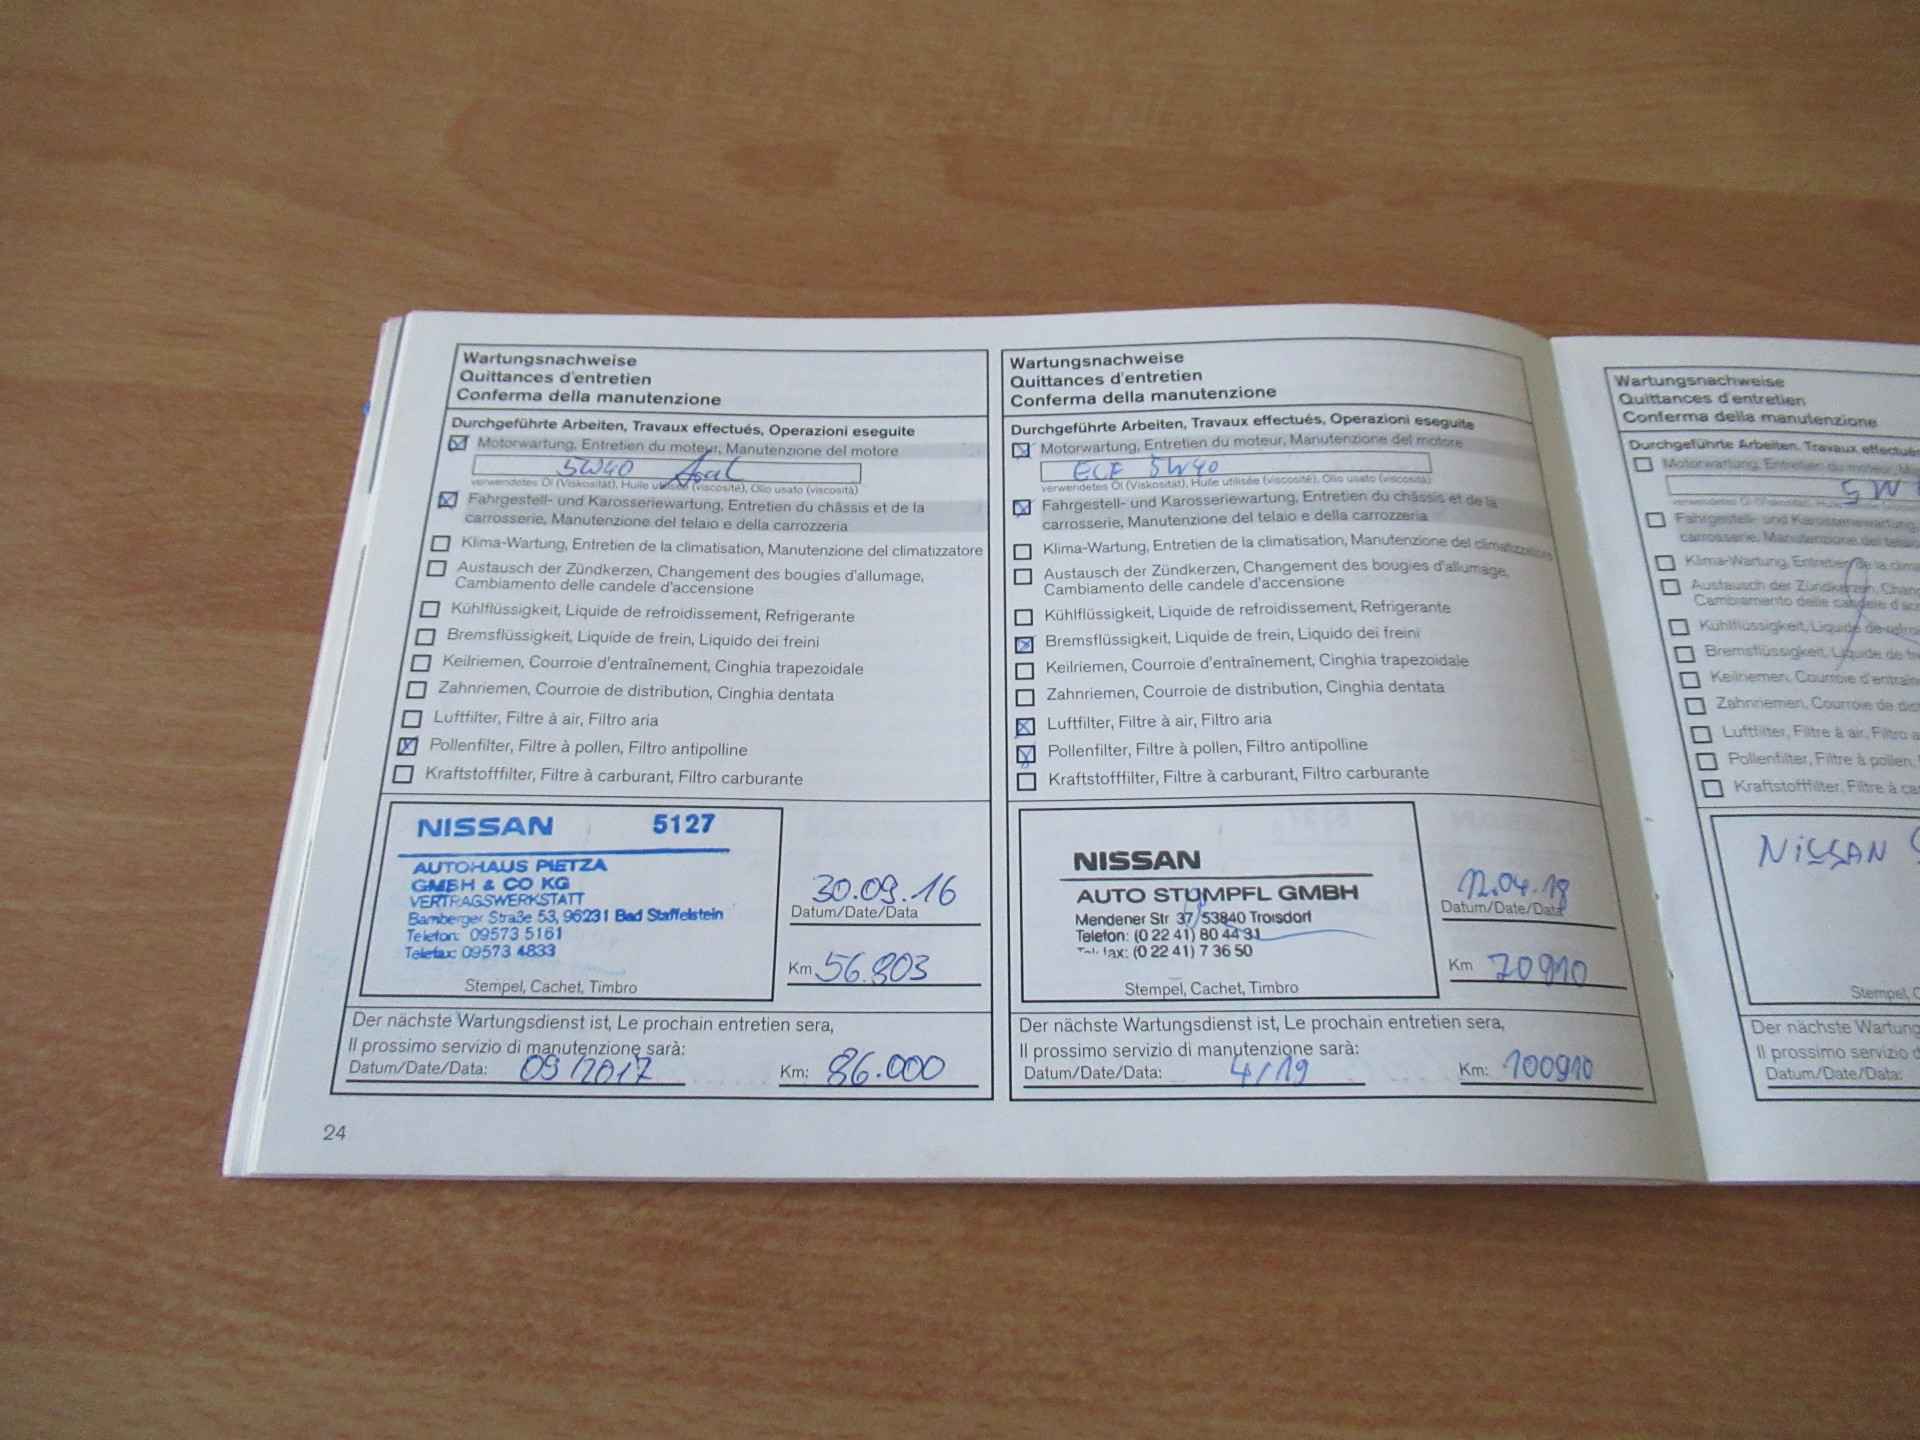 Wartungsnachweise
Quittances d'entretien
Conferma della manutenzione
Durchgeführte Arbeiten, Travaux effectués, Operazioni eseguite
Motorwartung, Entretien du moteur, Manutenzione del motore
5W40
verwendetes Öl (Viskosität), Huile utilisée (viscosité), Olio usato (viscosità)
Fahrgestell- und Karosseriewartung, Entretien du châssis et de la
carrosserie, Manutenzione del telaio e della carrozzeria
Klima-Wartung, Entretien de la climatisation, Manutenzione del climatizzatore
Austausch der Zündkerzen, Changement des bougies d'allumage,
Cambiamento delle candele d'accensione
Kühlflüssigkeit, Liquide de refroidissement, Refrigerante
Bremsflüssigkeit, Liquide de frein, Liquido dei freini
Keilriemen, Courroie d'entraînement, Cinghia trapezoidale
Zahnriemen, Courroie de distribution, Cinghia dentata
Luftfilter, Filtre à air, Filtro aria
Pollenfilter, Filtre à pollen, Filtro antipolline
Kraftstofffilter, Filtre à carburant, Filtro carburante
NISSAN 5127
AUTOHAUS PIETZA
GMBH & CO KG
VERTRAGSWERKSTATT
Bamberger Straße 53, 96231 Bad Staffelstein
Telefon: 09573 5161
Telefax: 09573 4833
Stempel, Cachet, Timbro
30.09.16
Datum/Date/Data
Km 56.803
Der nächste Wartungsdienst ist, Le prochain entretien sera,
Il prossimo servizio di manutenzione sarà:
Datum/Date/Data: 09/2017 Km: 86.000
24
Wartungsnachweise
Quittances d'entretien
Conferma della manutenzione
Durchgeführte Arbeiten, Travaux effectués, Operazioni eseguite
Motorwartung, Entretien du moteur, Manutenzione del motore
5W40
verwendetes Öl (Viskosität), Huile utilisée (viscosité), Olio usato (viscosità)
Fahrgestell- und Karosseriewartung, Entretien du châssis et de la
carrosserie, Manutenzione del telaio e della carrozzeria
Klima-Wartung, Entretien de la climatisation, Manutenzione del climatizzatore
Austausch der Zündkerzen, Changement des bougies d'allumage,
Cambiamento delle candele d'accensione
Kühlflüssigkeit, Liquide de refroidissement, Refrigerante
Bremsflüssigkeit, Liquide de frein, Liquido dei freini
Keilriemen, Courroie d'entraînement, Cinghia trapezoidale
Zahnriemen, Courroie de distribution, Cinghia dentata
Luftfilter, Filtre à air, Filtro aria
Pollenfilter, Filtre à pollen, Filtro antipolline
Kraftstofffilter, Filtre à carburant, Filtro carburante
NISSAN
AUTO STUMPFL GMBH
Mendener Str 37 53840 Troisdorf
Telefon: (0 22 41) 80 44 31
fax: (0 22 41) 7 36 50
Stempel, Cachet, Timbro
12.04.18
Datum/Date/Data
Km 70910
Der nächste Wartungsdienst ist, Le prochain entretien sera,
Il prossimo servizio di manutenzione sarà:
Datum/Date/Data: 4/19 Km: 100910
Wartungsnachweise
Quittances d'entretien
Conferma della manutenzione
Durchgeführte Arbeiten, Travaux
Motorwartung, Entretien du moteur,
5W
Fahrgestell- und Karosseriewartung,
carrosserie, Manutenzione del
Klima-Wartung, Entretien de la
Austausch der Zündkerzen,
Cambiamento delle candele
Kühlflüssigkeit, Liquide de
Bremsflüssigkeit, Liquide de
Keilriemen, Courroie
Zahnriemen, Courroie de
Luftfilter, Filtre à air, Filtro
Pollenfilter, Filtre à pollen,
Kraftstofffilter, Filtre à
NISSAN
Stempel,
Der nächste
Il prossimo servizio
Datum/Date/Data: